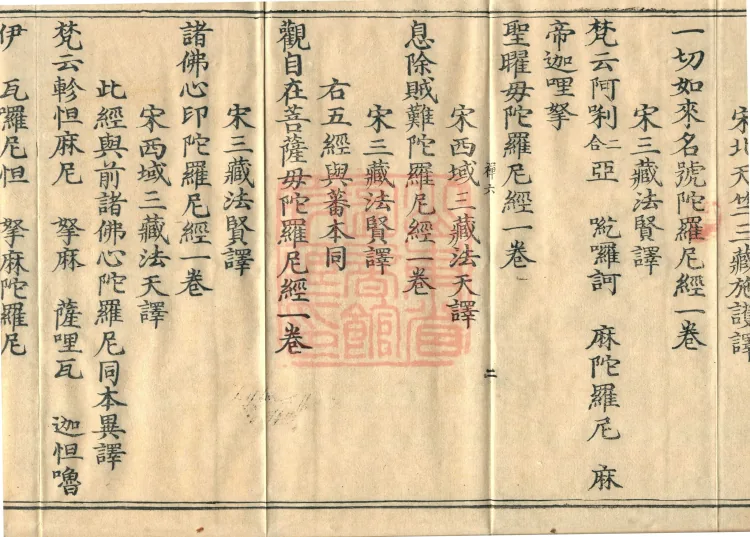 宋北天竺三藏施護譯
一切如來名號陀羅尼經一卷
宋三藏法賢譯
梵云阿唎二合亞 吃囉訶 麻陀羅尼 麻
帝迦哩拏
聖曜毋陀羅尼經一卷
宋西域三藏法天譯
二
息除賊難陀羅尼經一卷
宋三藏法賢譯
右五經與蕃本同
觀自在菩薩毋陀羅尼經一卷
宋三藏法賢譯
諸佛心印陀羅尼經一卷
宋西域三藏法天譯
此經與前諸佛心陀羅尼同本異譯
梵云軫怛麻尼 拏麻 薩哩瓦 迦怛嚕
伊 瓦羅尼怛 拏麻陀羅尼